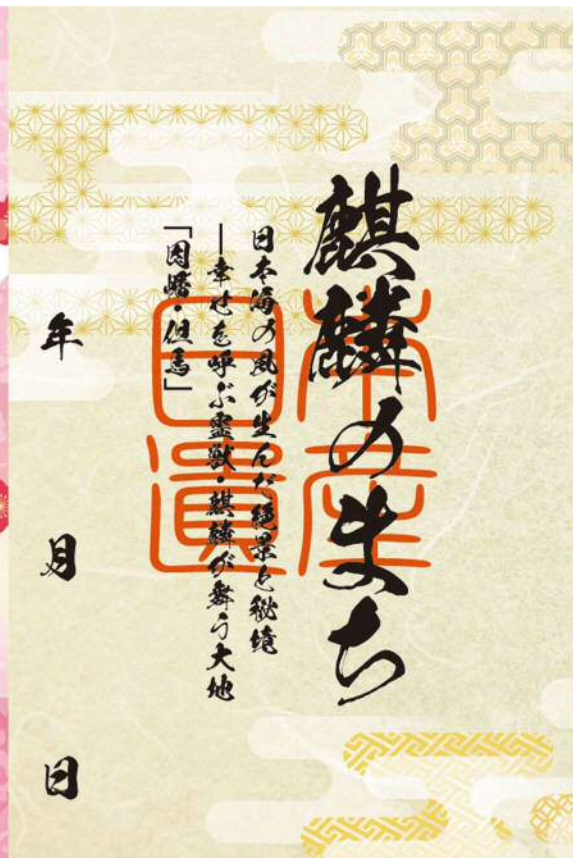 麒麟のまち
日本海の風が生んだ絶景と秘境
―幸せを呼ぶ霊獣・麒麟が舞う大地
「因幡・但馬」
日本
遺産
年 月 日